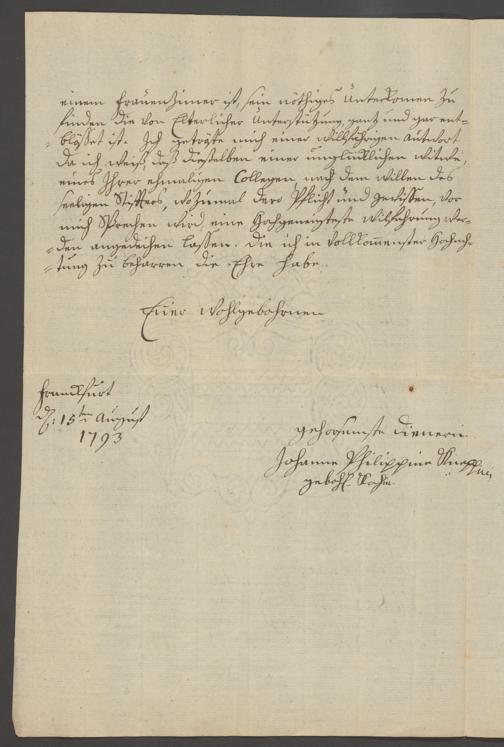 einem Frauenzimer ist, sein nöthiges Unterkomen zu
finden die von Elterlicher Unterstützung ganz und gar ent-
blöset ist. Ich getröste mich einer willfährigen Antwort
da ich weiß daß dieselben einer unglücklichen Witwe,
eines Ihrer ehmaligen Collegen nach dem Willen des
seeligen Stifters, wozumal dero Pflicht und Gewissen, vor
mich Sprechen wird, eine Hochgeneigteste Willfahrung wer-
den angedeihen lassen. Die ich in vollkommenster Hochach-
tung zu beharren die Ehre habe.
Euer Wohlgebohrnen
Franckfurt
d: 15ten August
1793
gehorsamste Dienerin
Johanne Philippine
gebohr.